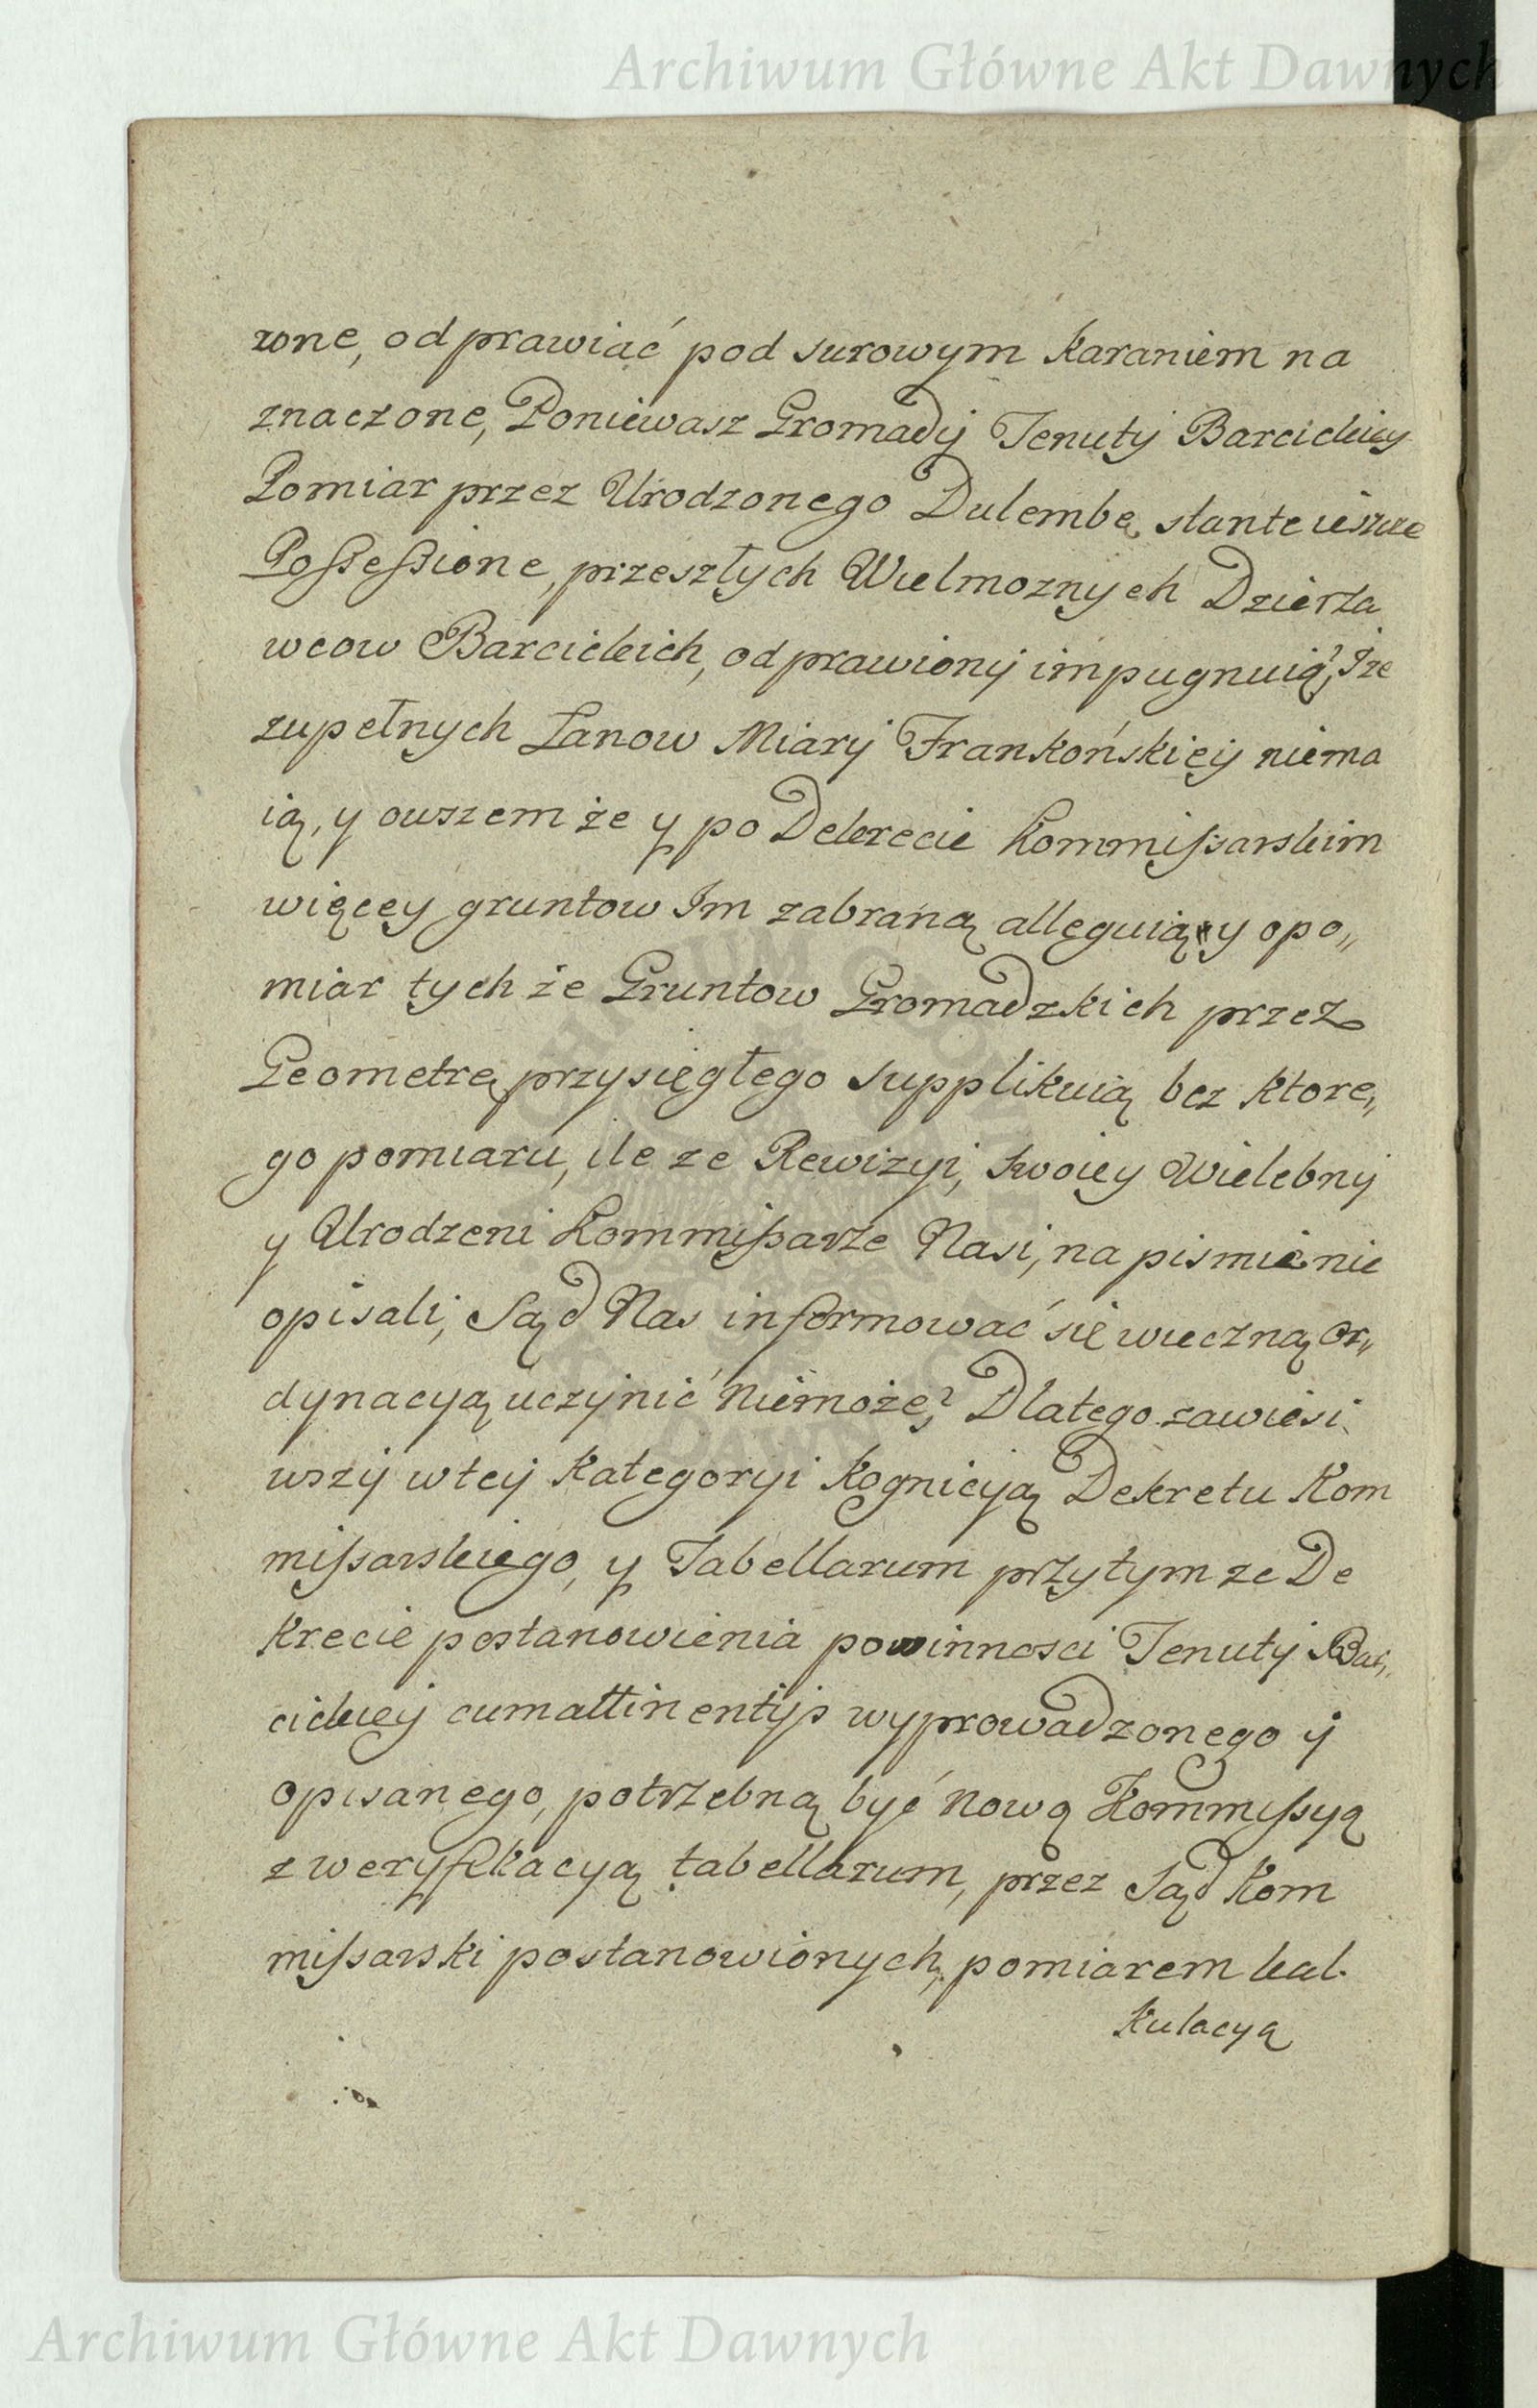 Archiwum Główne Akt Dawnych
rone, odprawiać pod surowym karaniem na
znaczone, Poniewasz Gromady Tenuty Barcickiey
Pomiar przez Urodzonego Dulembę stante ieszcze
Possessione, przeszłych Wielmoznych Dzierża
wcow Barcickich, odprawiony impugnuią, Iże
zupełnych Łanow Miary Frankońskiey niema
ią, y owszem że y po Dekrecie Kommissarskim
więcey gruntow Im zabraną alleguią y opo„
miar tych że Gruntow Gromadzkich przez
Geometrę przysięgłego supplikuią bez ktore„
go pomiaru, ile ze Rewizyi, swoiey Wielebny
y Urodzeni Kommissarze Nasi, na pismie nie
opisali, Sąd Nas informować się wieczną or„
dynacyą uczynić niemoże, Dlatego zawiesi
wszy w tey kategoryi kognicyą Dekretu Kom
missarskiego, y Tabellarum przytym ze De
krecie postanowienia powinnosci Tenuty Bar„
cickiey cum attinentijs wyprowadzonego y
opisanego, potrzebną być nową Kommissyą
z weryfikacyą tabellarum, przez Sąd Kom
missarski postanowionych, pomiarem kal.
kulacyą
Archiwum Główne Akt Dawnych